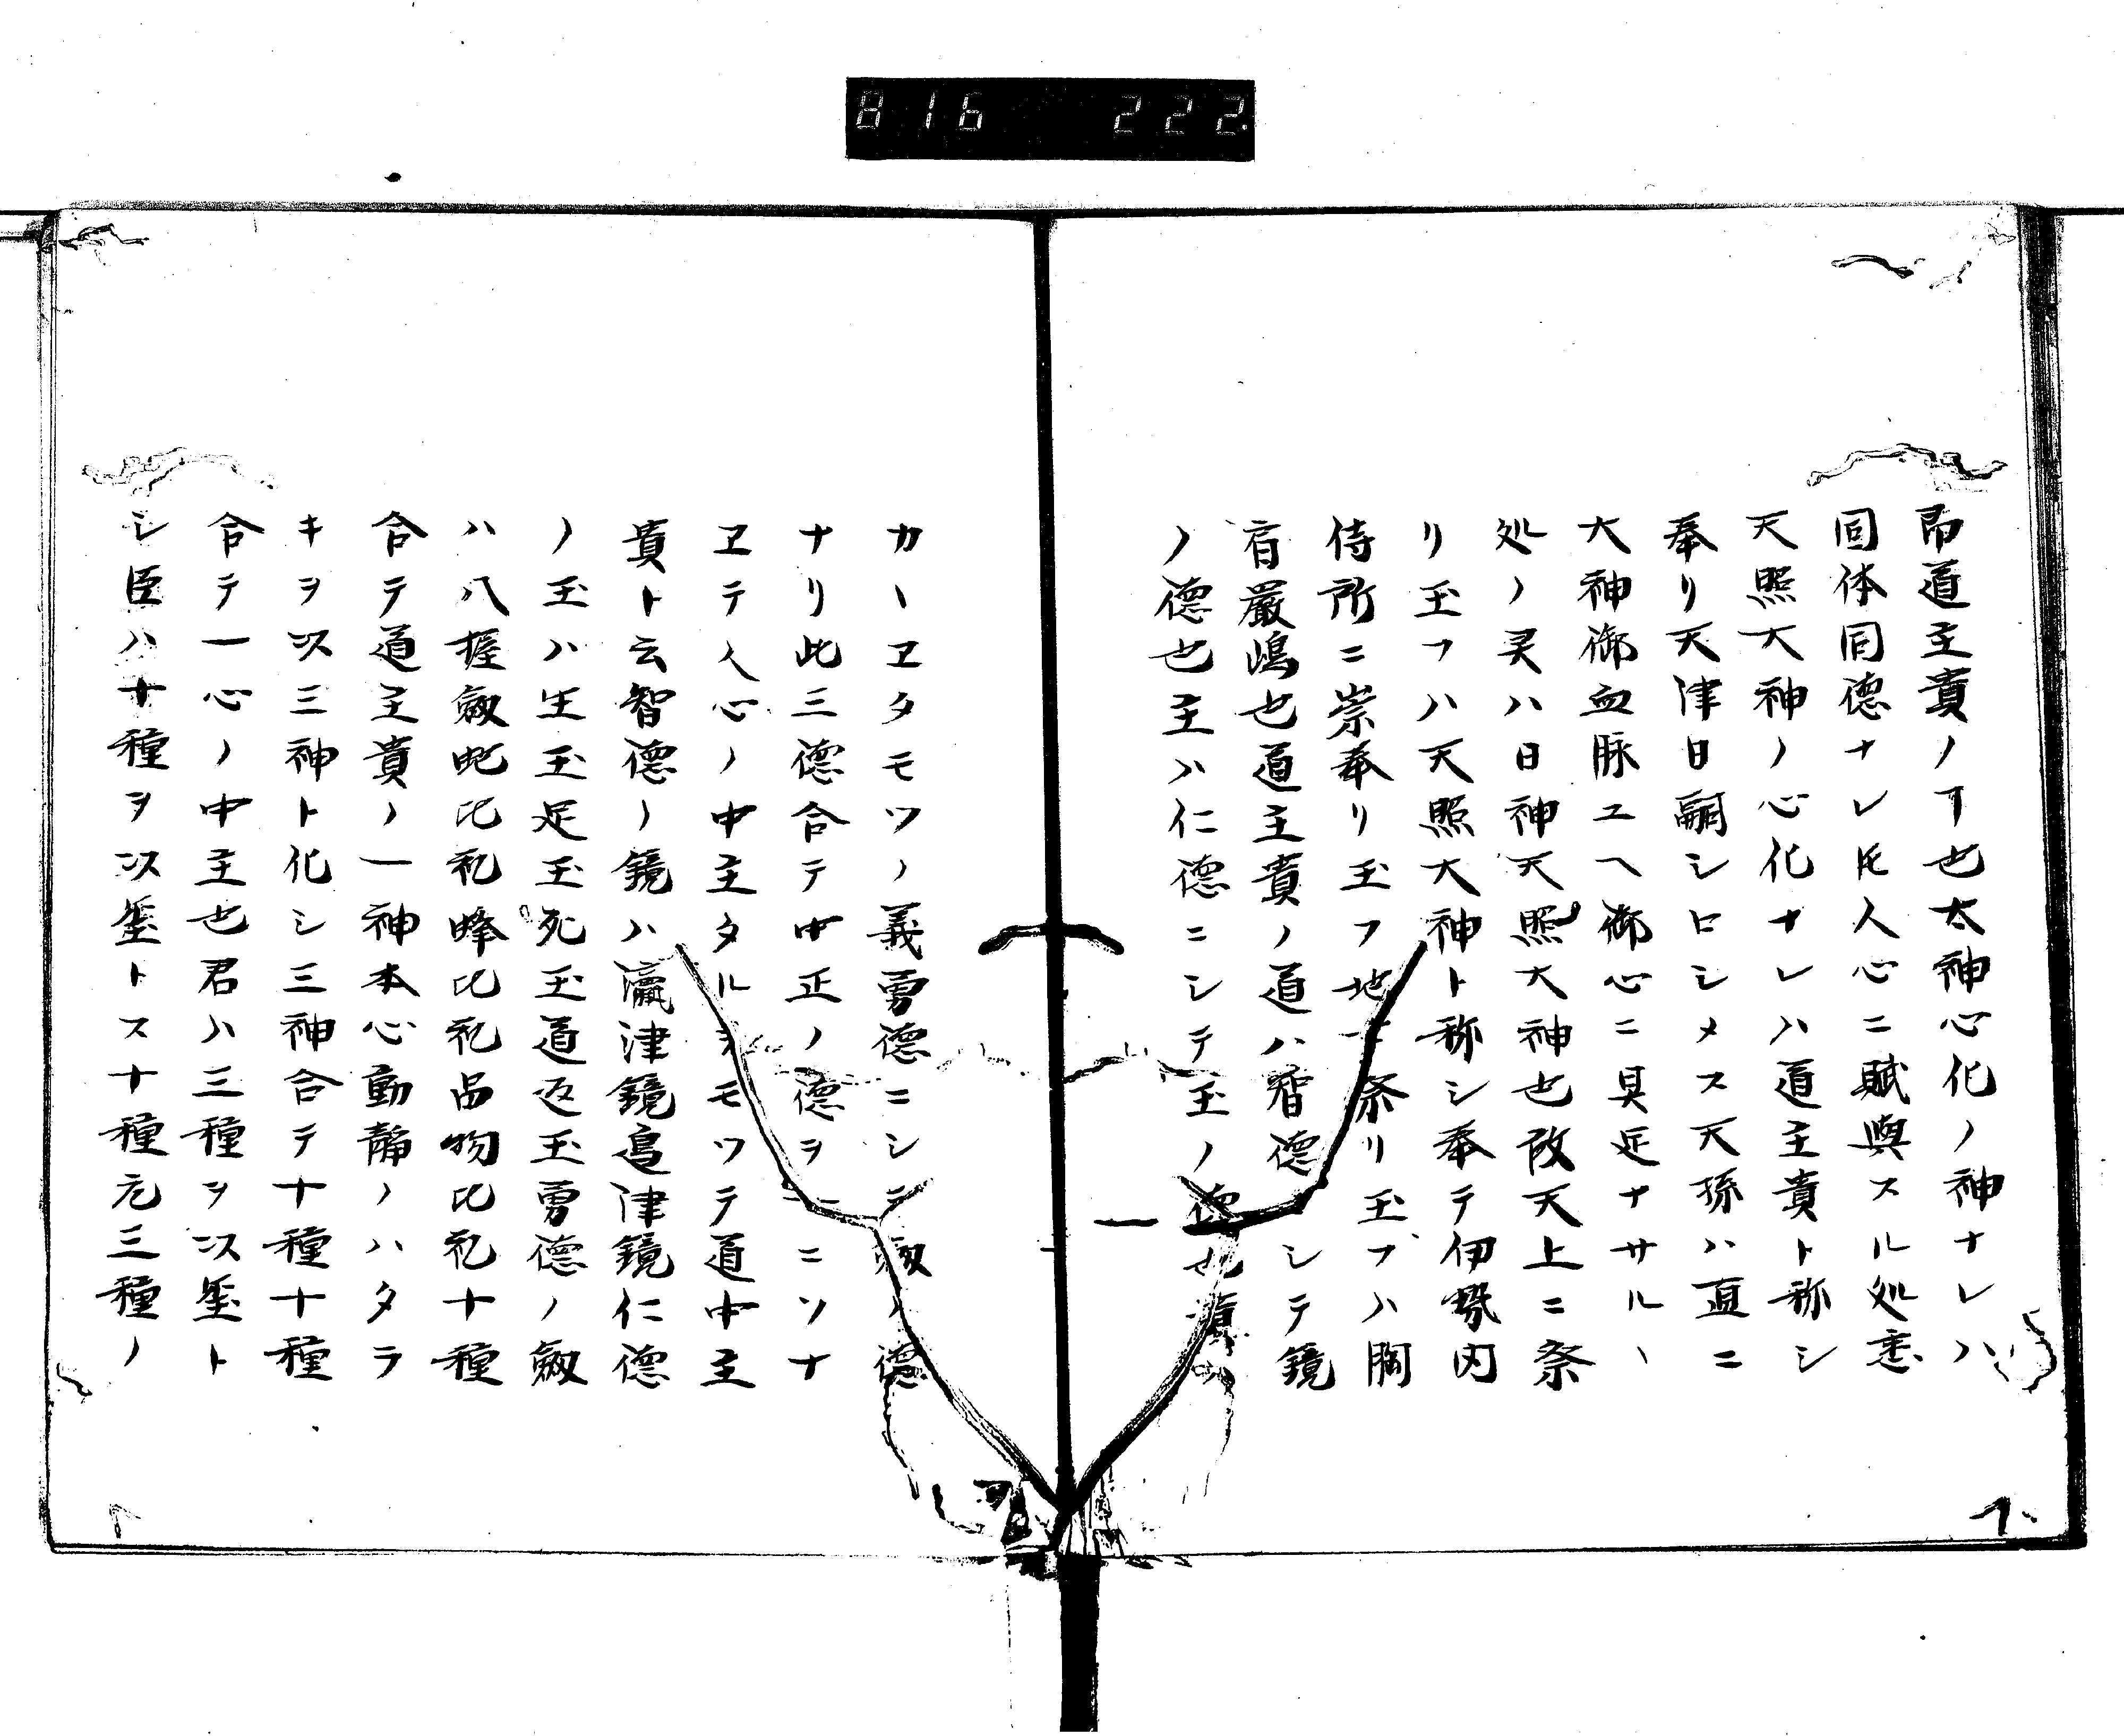 816 222
即道主貴ノヿ也太神心化ノ神ナレハ
同体同徳ナレ𪜈人心ニ賦與スル処悉
天照大神ノ心化ナレハ道主貴ト称シ
奉リ天津日嗣シロシメス天孫ハ直ニ
大神御血脉ユヘ御心ニ具足ナサルヽ
処ノ灵ハ日神天照大神也故天上ニ祭
リ玉フハ天照大神ト称シ奉テ伊勢内
侍所ニ崇奉リ玉フ地ニ祭リ玉フハ胸
肩嚴嶋也道主貴ノ道ハ智德ニシテ鏡
ノ德也主ハ仁德ニシテ玉ノ德也貴ハ
カヽヱタモツノ義勇德ニシテ劔ノ德
ナリ此三德合テ中正ノ德ヲニニソナ
ヱテ人心ノ中主タルヲモツテ道中主
貴ト云智德ノ鏡ハ瀛津鏡邊津鏡仁德
ノ玉ハ生玉足玉死玉道返玉勇德ノ劔
ハ八握劔虵比礼蜂比礼品物比礼十種
合テ道主貴ノ一神本心動静ノハタラ
キヲ以三神ト化シ三神合テ十種十種
合テ一心ノ中主也君ハ三種ヲ以璽ト
シ臣ハ十種ヲ以璽トス十種元三種ノ